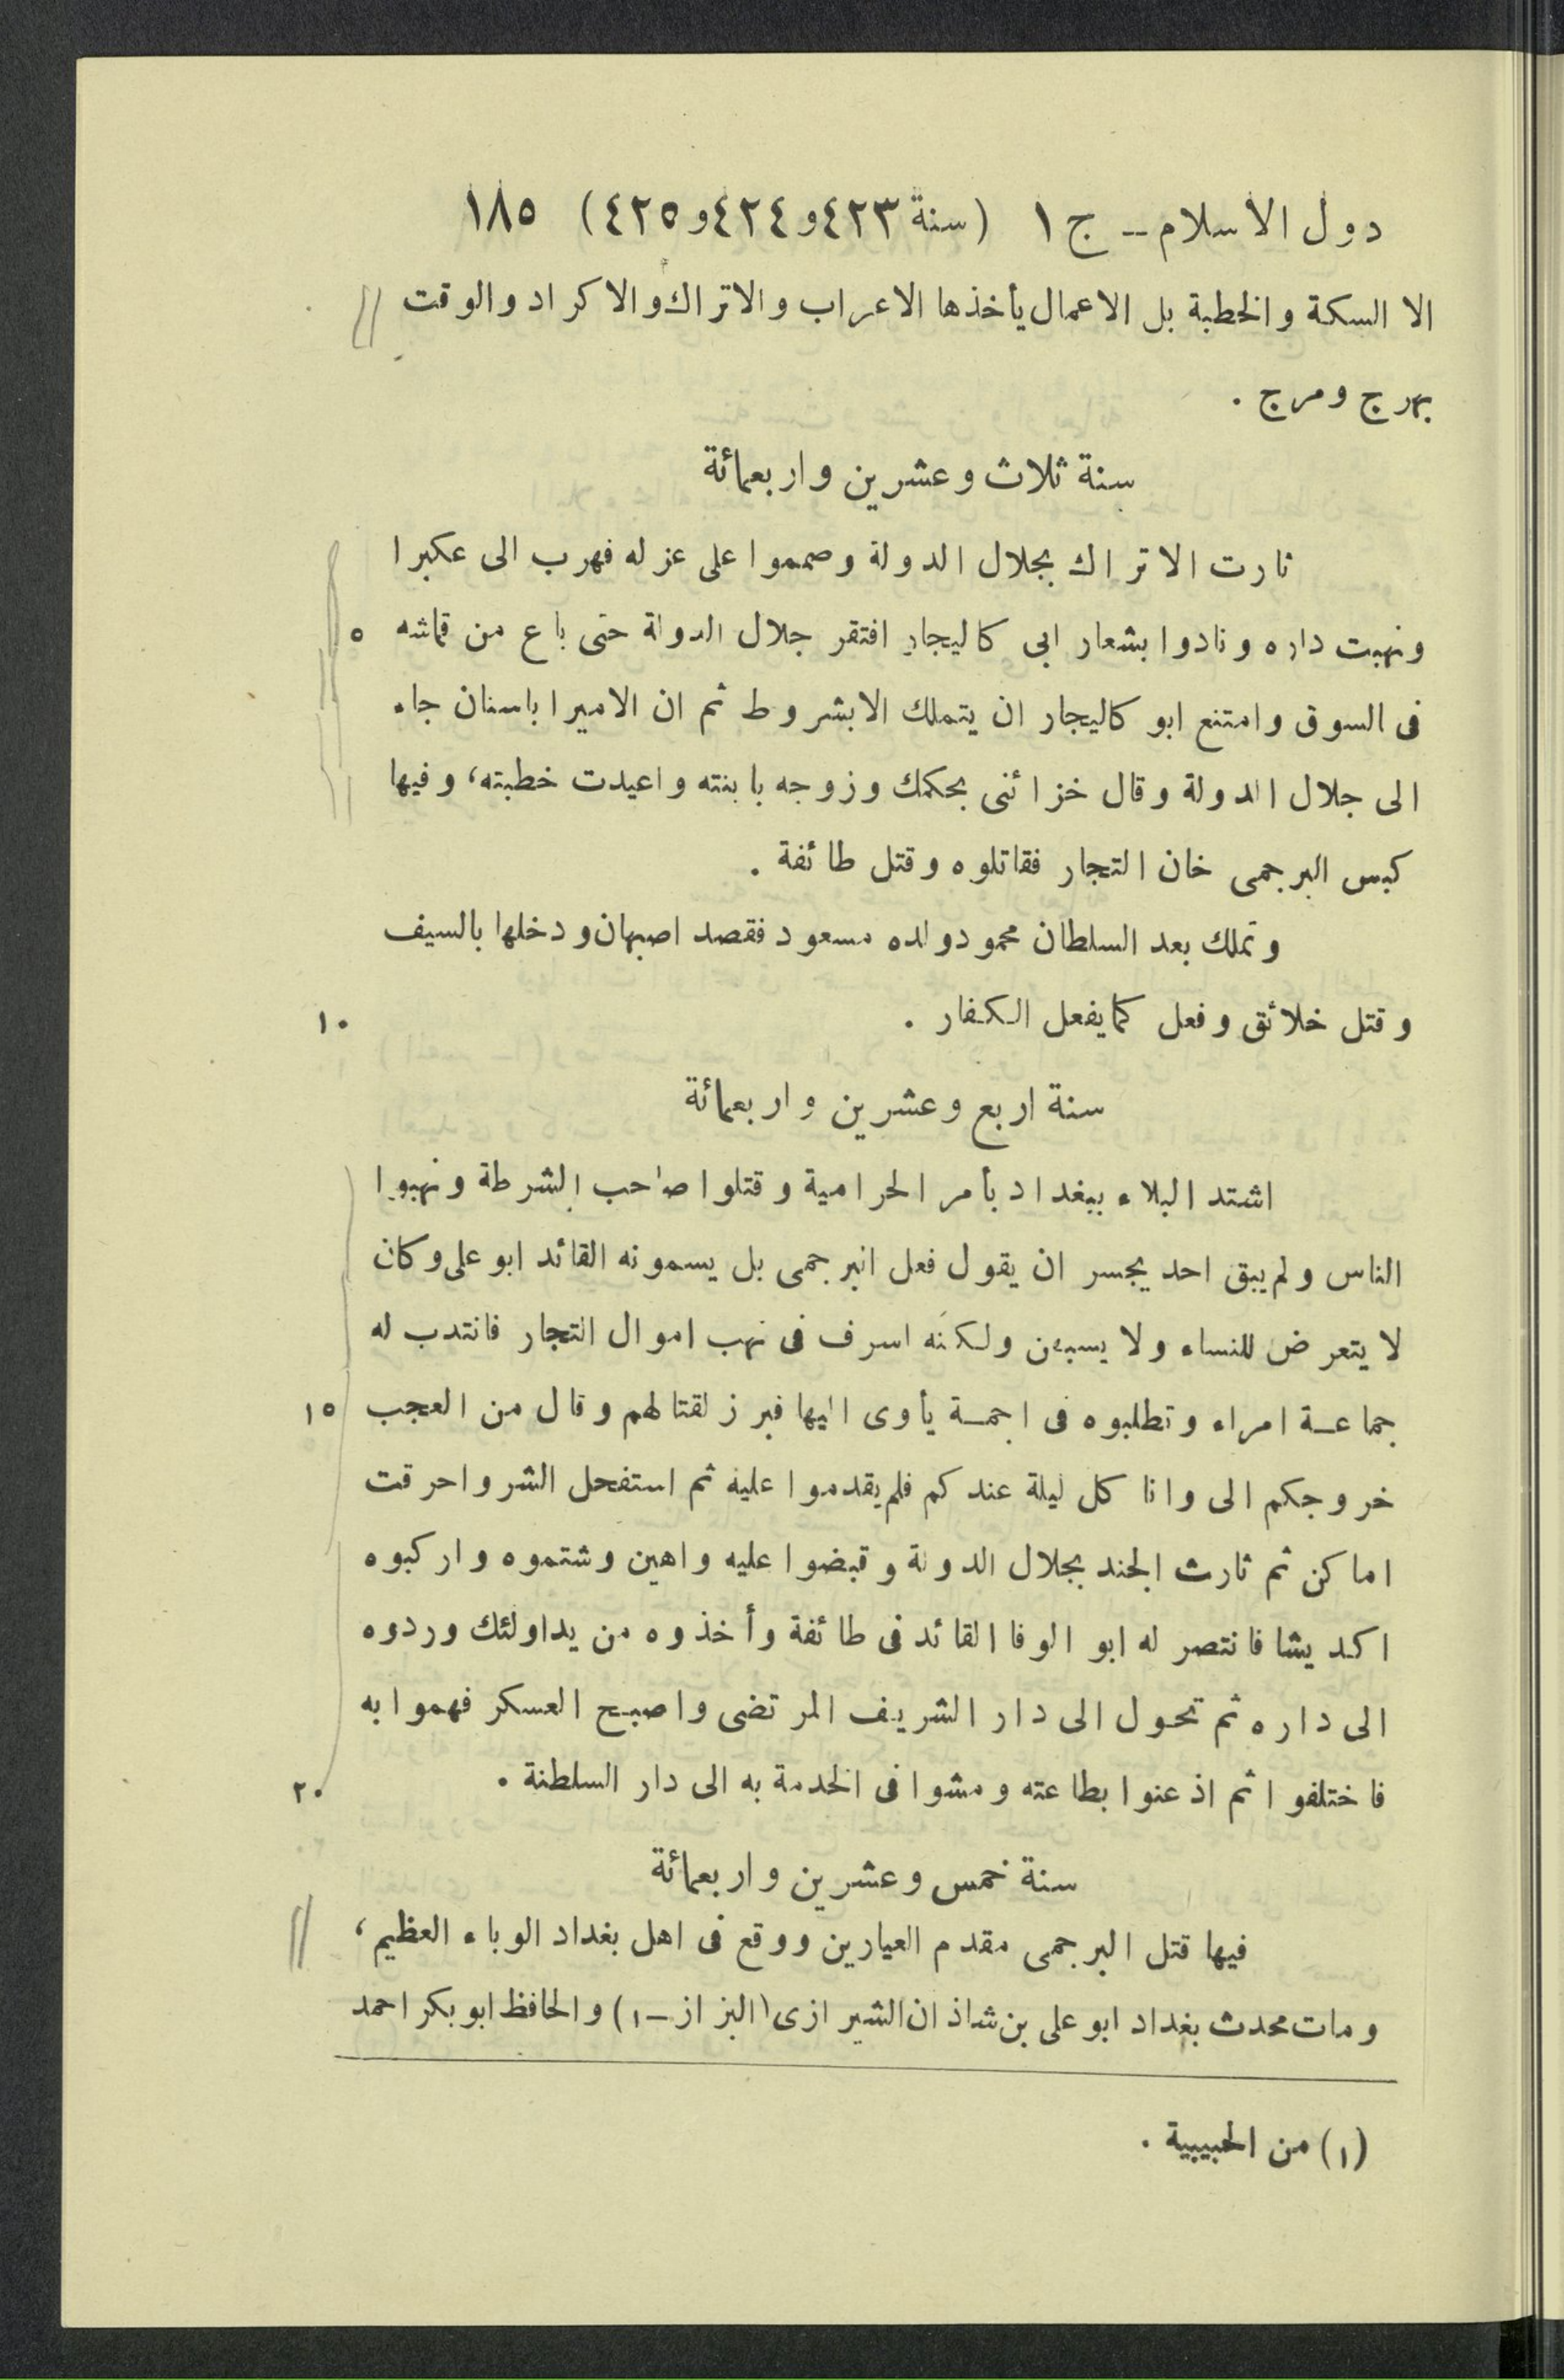 دول الاسلام -- ج ١ (سنة ٤٢٣و٤٢٤و٤٢٥) ١٨٥
الا السكة والخطبة بل الاعمال يأخذها الاعراب والاتراك والاكراد والوقت
بهرج ومرج .
سنة ثلاث وعشرين واربعمائة
ثارت الاتراك بجلال الدولة وصمموا على عزله فهرب الى عكبرا
ونهبت داره ونادوا بشعار ابى كاليجار افتقر جلال الدولة حتى باع من قماشه ٥
فى السوق وامتنع ابو كاليجار ان يتملك الابشروط ثم ان الامير اباسنان جاء
الى جلال الدولة وقال خزائنى بحكمك وزوجه بابنته واعيدت خطبته، وفيها
كبس البرجمى خان التجار فقاتلوه وقتل طائفة .
وتملك بعد السلطان محمود ولده مسعود فقصد اصبهان ودخلها بالسيف
وقتل خلائق وفعل كما يفعل الكفار . ١٠
سنة اربع وعشرين واربعمائة
اشتد البلاء ببغداد بأمر الحرامية وقتلوا صاحب الشرطة ونهبوا
الناس ولم يبق احد يجسر ان يقول فعل البرجمى بل يسمونه القائد ابو على وكان
لا يتعرض للنساء ولا يسبهن ولكنه اسرف فى نهب اموال التجار فانتدب له
جماعة امراء وتطلبوه فى اجمة يأوى اليها فبرز لقتالهم وقال من العجب ١٥
خروجكم الى وانا كل ليلة عندكم فلم يقدموا عليه ثم استفحل الشر واحرقت
اماكن ثم ثارت الجند بجلال الدولة وقبضوا عليه واهين وشتموه واركبوه
اكديشا فانتصر له ابو الوفا القائد فى طائفة وأخذوه من يد اولئك وردوه
الى داره ثم تحول الى دار الشريف المرتضى واصبح العسكر فهموا به
فاختلفوا ثم اذعنوا بطاعته ومشوا فى الخدمة به الى دار السلطنة . ٢٠
سنة خمس وعشرين واربعمائة
فيها قتل البرجمى مقدم العيارين ووقع فى اهل بغداد الوباء العظيم،
ومات محدث بغداد ابو على بن شاذان الشيرازى (البزاز -١) والحافظ ابو بكر احمد
(١) من الحبيبية .